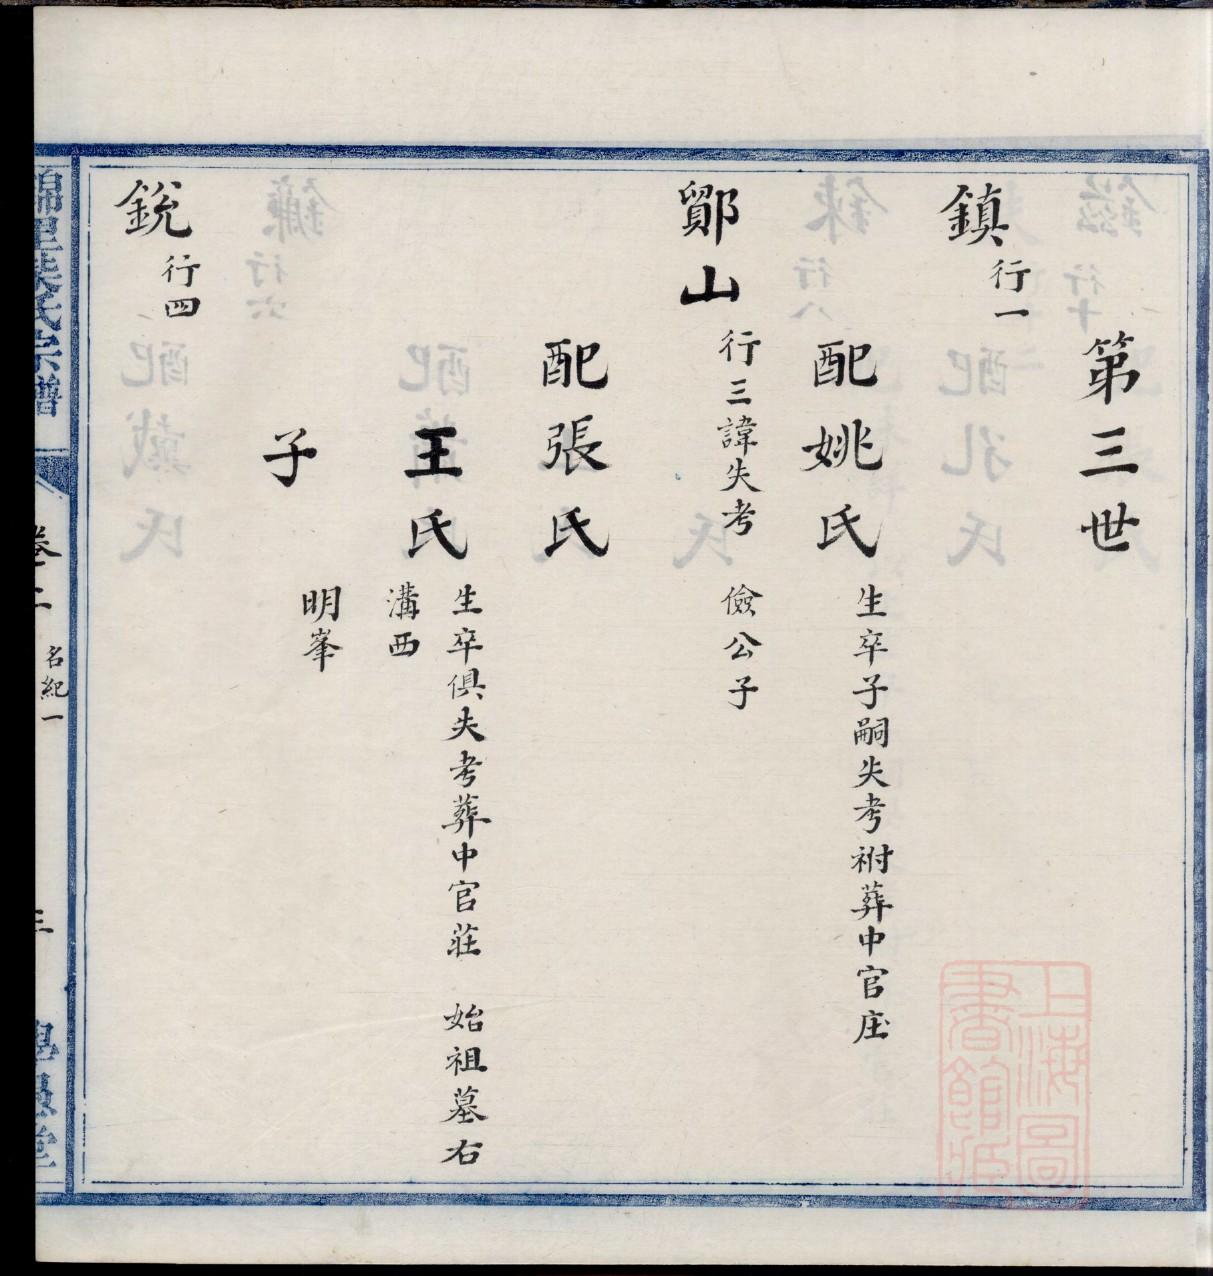 第三世
鎮 行一
配姚氏 生卒子嗣失考祔葬中官庄
鄮山 行三諱失考 儉公子
配張氏
王氏 生卒俱失考葬中官莊 始祖墓右
溝西
子 明峯
銳 行四
氏宗譜
卷二 名紀一
三
上海圖
書館藏